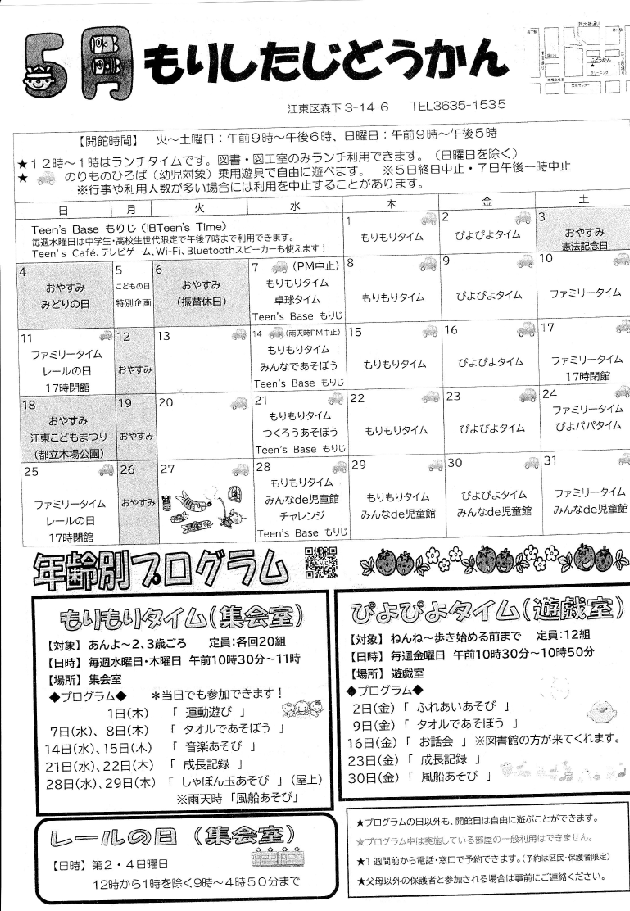 5月 もりしたじどうかん
江東区森下3-14-6 TEL3635-1535
【開館時間】 火～土曜日：午前9時～午後6時、日曜日：午前9時～午後5時
★12時～1時はランチタイムです。図書・図工室のみランチ利用できます。（日曜日を除く）
★ のりものひろば（幼児対象）乗用遊具で自由に遊べます。 ※5日終日中止・7日午後一時中止
※行事や利用人数が多い場合には利用を中止することがあります。
日 月 火 水 木 金 土
Teen's Base もりじ（BTeen's Time）
毎週水曜日は中学生・高校生世代限定で午後7時まで利用できます。
Teen's Cafe、テレビゲーム、Wi-Fi、Bluetoothスピーカーも使えます！
1
もりもりタイム
2
ぴよぴよタイム
3
おやすみ
憲法記念日
4
おやすみ
みどりの日
5
こどもの日
特別企画
6
おやすみ
（振替休日）
7 （PM中止）
もりもりタイム
卓球タイム
Teen's Base もりじ
8
もりもりタイム
9
ぴよぴよタイム
10
ファミリータイム
11
ファミリータイム
レールの日
17時閉館
12
おやすみ
13
14 （雨天時PM中止）
もりもりタイム
みんなであそぼう
Teen's Base もりじ
15
もりもりタイム
16
ぴよぴよタイム
17
ファミリータイム
17時閉館
18
おやすみ
江東こどもまつり
（都立木場公園）
19
おやすみ
20
21
もりもりタイム
つくろうあそぼう
Teen's Base もりじ
22
もりもりタイム
23
ぴよぴよタイム
24
ファミリータイム
ぴよパパタイム
25
ファミリータイム
レールの日
17時閉館
26
おやすみ
27
28
もりもりタイム
みんなde児童館
チャレンジ
Teen's Base もりじ
29
もりもりタイム
みんなde児童館
30
ぴよぴよタイム
みんなde児童館
31
ファミリータイム
みんなde児童館
年齢別プログラム
もりもりタイム（集会室）
【対象】あんよ～2、3歳ごろ 定員：各回20組
【日時】毎週水曜日・木曜日 午前10時30分～11時
【場所】集会室
◆プログラム◆ ＊当日でも参加できます！
1日(木) 「 運動遊び 」
7日(水)、8日(木) 「 タオルであそぼう 」
14日(水)、15日(木) 「 音楽あそび 」
21日(水)、22日(木) 「 成長記録 」
28日(水)、29日(木) 「 しゃぼん玉あそび 」（屋上）
※雨天時「風船あそび」
ぴよぴよタイム（遊戯室）
【対象】ねんね～歩き始める前まで 定員：12組
【日時】毎週金曜日 午前10時30分～10時50分
【場所】遊戯室
◆プログラム◆
2日(金)「 ふれあいあそび 」
9日(金)「 タオルであそぼう 」
16日(金)「 お話会 」※図書館の方が来てくれます。
23日(金)「 成長記録 」
30日(金)「 風船あそび 」
レールの日（集会室）
【日時】第2・4日曜日
12時から1時を除く9時～4時50分まで
★プログラムの日以外も、開館日は自由に遊ぶことができます。
★プログラム中は実施している部屋の一般利用はできません。
★1週間前から電話・窓口で予約できます。(予約は区民・保護者限定)
★父母以外の保護者と参加される場合は事前にご連絡ください。